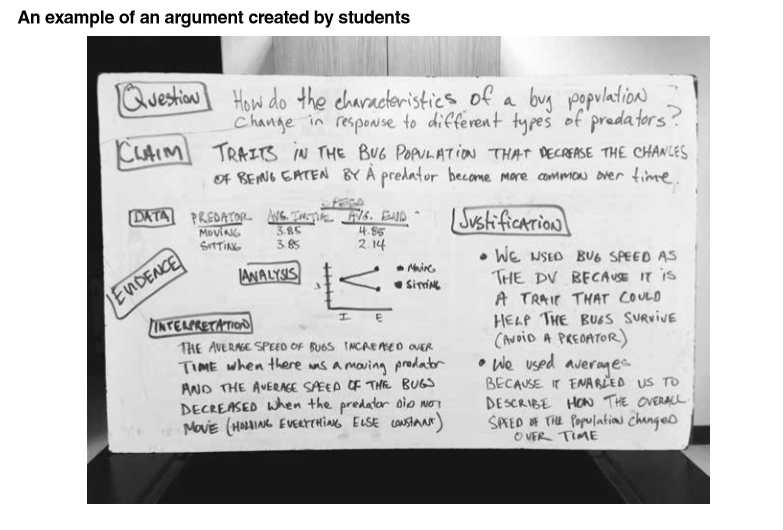 An example of an argument created by students
Question
How do the characteristics of a bug population
change in response to different types of predators?
CLAIM
TRAITS IN THE BUG POPULATION THAT DECREASE THE CHANCES
OF BEING EATEN BY A predator become more common over time.
DATA
SPEED
PREDATOR AVG. INITIAL AVG. END
MOVING 3.85 4.85
SITTING 3.85 2.14
EVIDENCE
ANALYSIS
3
MOVING
SITTING
I E
INTERPRETATION
THE AVERAGE SPEED OF BUGS INCREASED OVER
TIME when there was a moving predator
AND THE AVERAGE SPEED OF THE BUGS
DECREASED when the predator DID NOT
MOVE (HOLDING EVERYTHING ELSE CONSTANT)
JUSTIFICATION
• WE USED BUG SPEED AS
THE DV BECAUSE IT IS
A TRAIT THAT COULD
HELP THE BUGS SURVIVE
(AVOID A PREDATOR)
• We used averages
BECAUSE IT ENABLED US TO
DESCRIBE HOW THE OVERALL
SPEED OF THE Population Changed
OVER TIME